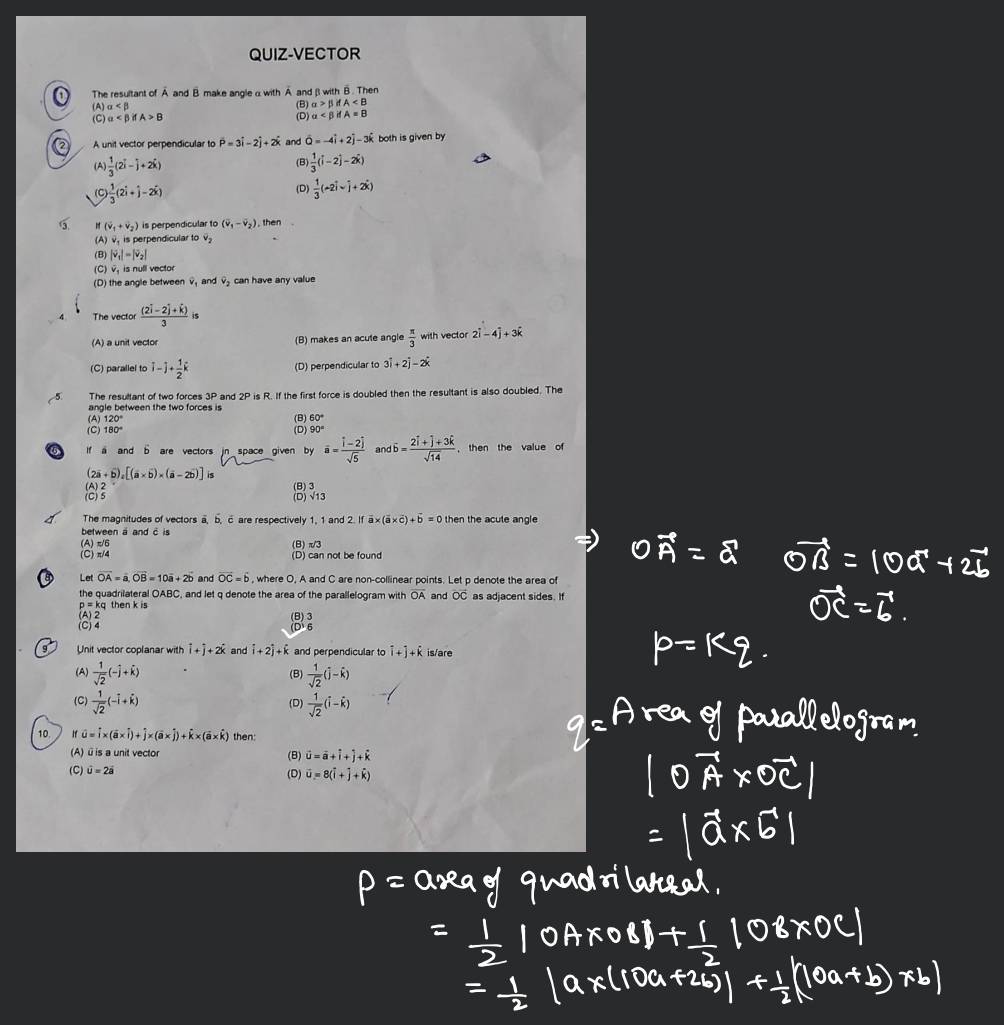 QUIZ-VECTOR
1. The resultant of A⃗ and B⃗ make angle α with A⃗ and β with B⃗. Then
(A) α < β (B) α > β if A < B
(C) α < β if A > B (D) α < β if A = B
2. A unit vector perpendicular to P⃗ = 3î − 2ĵ + 2k̂ and Q⃗ = −4î + 2ĵ − 3k̂ both is given by
(A) 1/3(2î − ĵ + 2k̂) (B) 1/3(î − 2ĵ − 2k̂)
(C) 1/3(2î + ĵ − 2k̂) (D) 1/3(−2î − ĵ + 2k̂)
3. If (v⃗₁ + v⃗₂) is perpendicular to (v⃗₁ − v⃗₂), then
(A) v⃗₁ is perpendicular to v⃗₂
(B) |v⃗₁| = |v⃗₂|
(C) v⃗₁ is null vector
(D) the angle between v⃗₁ and v⃗₂ can have any value
4. The vector (2î − 2ĵ + k̂)/3 is
(A) a unit vector (B) makes an acute angle π/3 with vector 2î − 4ĵ + 3k̂
(C) parallel to î − ĵ + 1/2 k̂ (D) perpendicular to 3î + 2ĵ − 2k̂
5. The resultant of two forces 3P and 2P is R. If the first force is doubled then the resultant is also doubled. The
angle between the two forces is
(A) 120° (B) 60°
(C) 180° (D) 90°
6. If a⃗ and b⃗ are vectors in space given by a⃗ = (î − 2ĵ)/√5 and b⃗ = (2î + ĵ + 3k̂)/√14, then the value of
(2a⃗ + b⃗).[(a⃗ × b⃗) × (a⃗ − 2b⃗)] is
(A) 2 (B) 3
(C) 5 (D) √13
7. The magnitudes of vectors a⃗, b⃗, c⃗ are respectively 1, 1 and 2. If a⃗ × (a⃗ × c⃗) + b⃗ = 0 then the acute angle
between a⃗ and c⃗ is
(A) π/6 (B) π/3
(C) π/4 (D) can not be found
8. Let OA = a⃗, OB = 10a⃗ + 2b⃗ and OC = b⃗, where O, A and C are non-collinear points. Let p denote the area of
the quadrilateral OABC, and let q denote the area of the parallelogram with OA and OC as adjacent sides. If
p = kq then k is
(A) 2 (B) 3
(C) 4 (D) 6
9. Unit vector coplanar with î + ĵ + 2k̂ and î + 2ĵ + k̂ and perpendicular to î + ĵ + k̂ is/are
(A) 1/√2(−ĵ + k̂) (B) 1/√2(ĵ − k̂)
(C) 1/√2(−î + k̂) (D) 1/√2(î − k̂)
10. If u⃗ = î × (a⃗ × î) + ĵ × (a⃗ × ĵ) + k̂ × (a⃗ × k̂) then:
(A) u⃗ is a unit vector (B) u⃗ = a⃗ + î + ĵ + k̂
(C) u⃗ = 2a⃗ (D) u⃗ = 8(î + ĵ + k̂)
⇒ OA⃗ = a⃗ OB⃗ = 10a⃗ + 2b⃗
OC⃗ = b⃗.
p = Kq.
q = Area of parallelogram.
|OA⃗ × OC⃗|
= |a⃗ × b⃗|
p = area of quadrilateral.
= 1/2 |OA × OB| + 1/2 |OB × OC|
= 1/2 |a × (10a + 2b)| + 1/2 |(10a + b) × b|